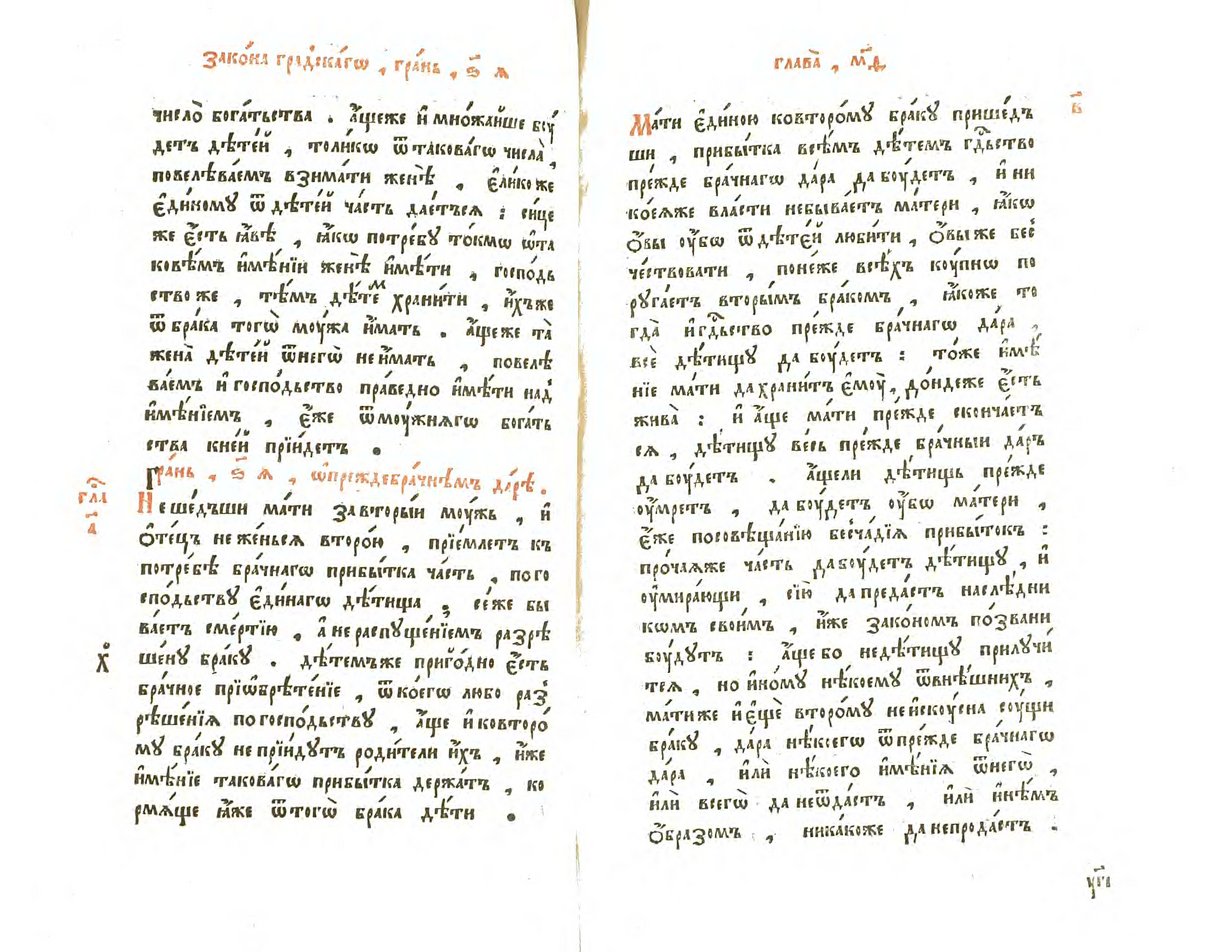 Зако́на гра́дскагѡ , гра́нь , ѕ҃ ѧ
число̀ бога́тьства . а҆́щеже и҆ мно́жайше бꙋ́
детъ дѣте́й , толи́кѡ ѿ такова́гѡ числа̀ ,
повелѣва́емъ взима́ти женѣ̀ , є҆ли́ко же
є҆ди́номꙋ ѿ дѣте́й ча́сть дае́тъсѧ : си́це
же є҆́сть ꙗ҆́вѣ , ꙗ҆́кѡ потре́бꙋ то́кмѡ ѡ҆та
ковѣ́мъ и҆мѣ́нїи женѣ̀ и҆мѣ́ти , госпо́дь
ство же , тѣ́мъ дѣ́теⷨ храни́ти , и҆́хъ же
ѿ бра́ка тогѡ̀ моу́жа и҆́мать . а҆́ще же та̀
жена̀ дѣте́й ѿ негѡ̀ не и҆́мать , повелѣ
ва́емъ и҆ госпо́дьство пра́ведно и҆мѣ́ти наⷣ
и҆мѣ́нїемъ , є҆́же ѿ моу́жнѧгѡ бога́ть
ства к не́й прїи́детъ .
Гра́нь , ѕ҃ ѧ , ѡ҆ преждебра́чнѣмъ да́рѣ .
гла̀
а҃
Не ше́дъши ма́ти за вторы́и моу́жь , и҆
ѻ҆те́цъ не же́ньсѧ второ́ю , прїе́млетъ къ
потре́бѣ бра́чнагѡ прибы́тка ча́сть , по го
спо́дьствꙋ є҆ди́нагѡ дѣ́тища , се́же бы
ва́етъ сме́ртїю , а҆ не распꙋще́нїемъ разрѣ
ше́нꙋ бра́кꙋ . дѣ́темъ же приго́дно є҆́сть
бра́чное прїѡбрѣте́нїе , ѿ ко́егѡ любо раⷥ
рѣше́нїѧ по госпо́дьствꙋ , а҆́ще и҆ ко второ́
мꙋ бра́кꙋ не прїи́дꙋтъ роди́тели и҆́хъ , и҆́же
и҆мѣ́нїе такова́гѡ прибы́тка держа́тъ , ко
рмѧ́ще ꙗ҆́же ѿ тогѡ̀ бра́ка дѣ́ти .
глава̀ , м҃д
в҃
Ма́ти є҆ди́ною ко второ́мꙋ бра́кꙋ прише́дъ
ши , прибы́тка всѣ́мъ дѣ́темъ гдⷭ҇ьство
пре́жде бра́чнагѡ да́ра да боу́детъ , и҆ ни
кое́ѧже вла́сти не быва́етъ ма́тери , ꙗ҆́кѡ
ѻ҆́вы оу҆́бѡ ѿ дѣте́й люби́ти , ѻ҆́вы же беⷥ
че́ствовати , поне́же всѣ́хъ коу́пнѡ по
рꙋга́етъ вторы́мъ бра́комъ , ꙗ҆́коже то
гда̀ и҆ гдⷭ҇ьство пре́жде бра́чнагѡ да́ра ,
всѐ дѣ́тищꙋ да боу́детъ : то́же и҆мѣ́
нїе ма́ти да храни́тъ є҆моу̀ , до́ндеже є҆́сть
жива̀ : и҆ а҆́ще ма́ти пре́жде сконча́етъ
сѧ , дѣ́тищꙋ ве́сь пре́жде бра́чныи да́ръ
да боу́детъ . а҆́щели дѣ́тищь пре́жде
оу҆́мретъ , да боу́детъ оу҆́бѡ ма́тери ,
є҆́же по совѣща́нїю бесча́дїѧ прибы́токъ :
про́чаѧже ча́сть да боу́детъ дѣ́тищꙋ , и҆
оу҆мира́ющи , сїю̀ да преда́стъ наслѣ́дни
кѡмъ свои́мъ , и҆́же зако́номъ по́звани
боу́дꙋтъ : а҆́ще бо не дѣ́тищꙋ прилꙋчи́
тсѧ , но и҆но́мꙋ нѣ́коемꙋ ѿ внѣ́шнихъ ,
ма́ти же и҆ є҆щѐ второ́мꙋ не и҆скоу́сна соу́щи
бра́кꙋ , да́ра нѣ́коегѡ ѿ пре́жде бра́чнагѡ
да́ра , и҆лѝ нѣ́коего и҆мѣ́нїѧ ѿ негѡ̀ ,
и҆лѝ всегѡ̀ да не ѿда́стъ , и҆лѝ и҆нѣ́мъ
ѻ҆́бразомъ , ника́коже да не прода́стъ .